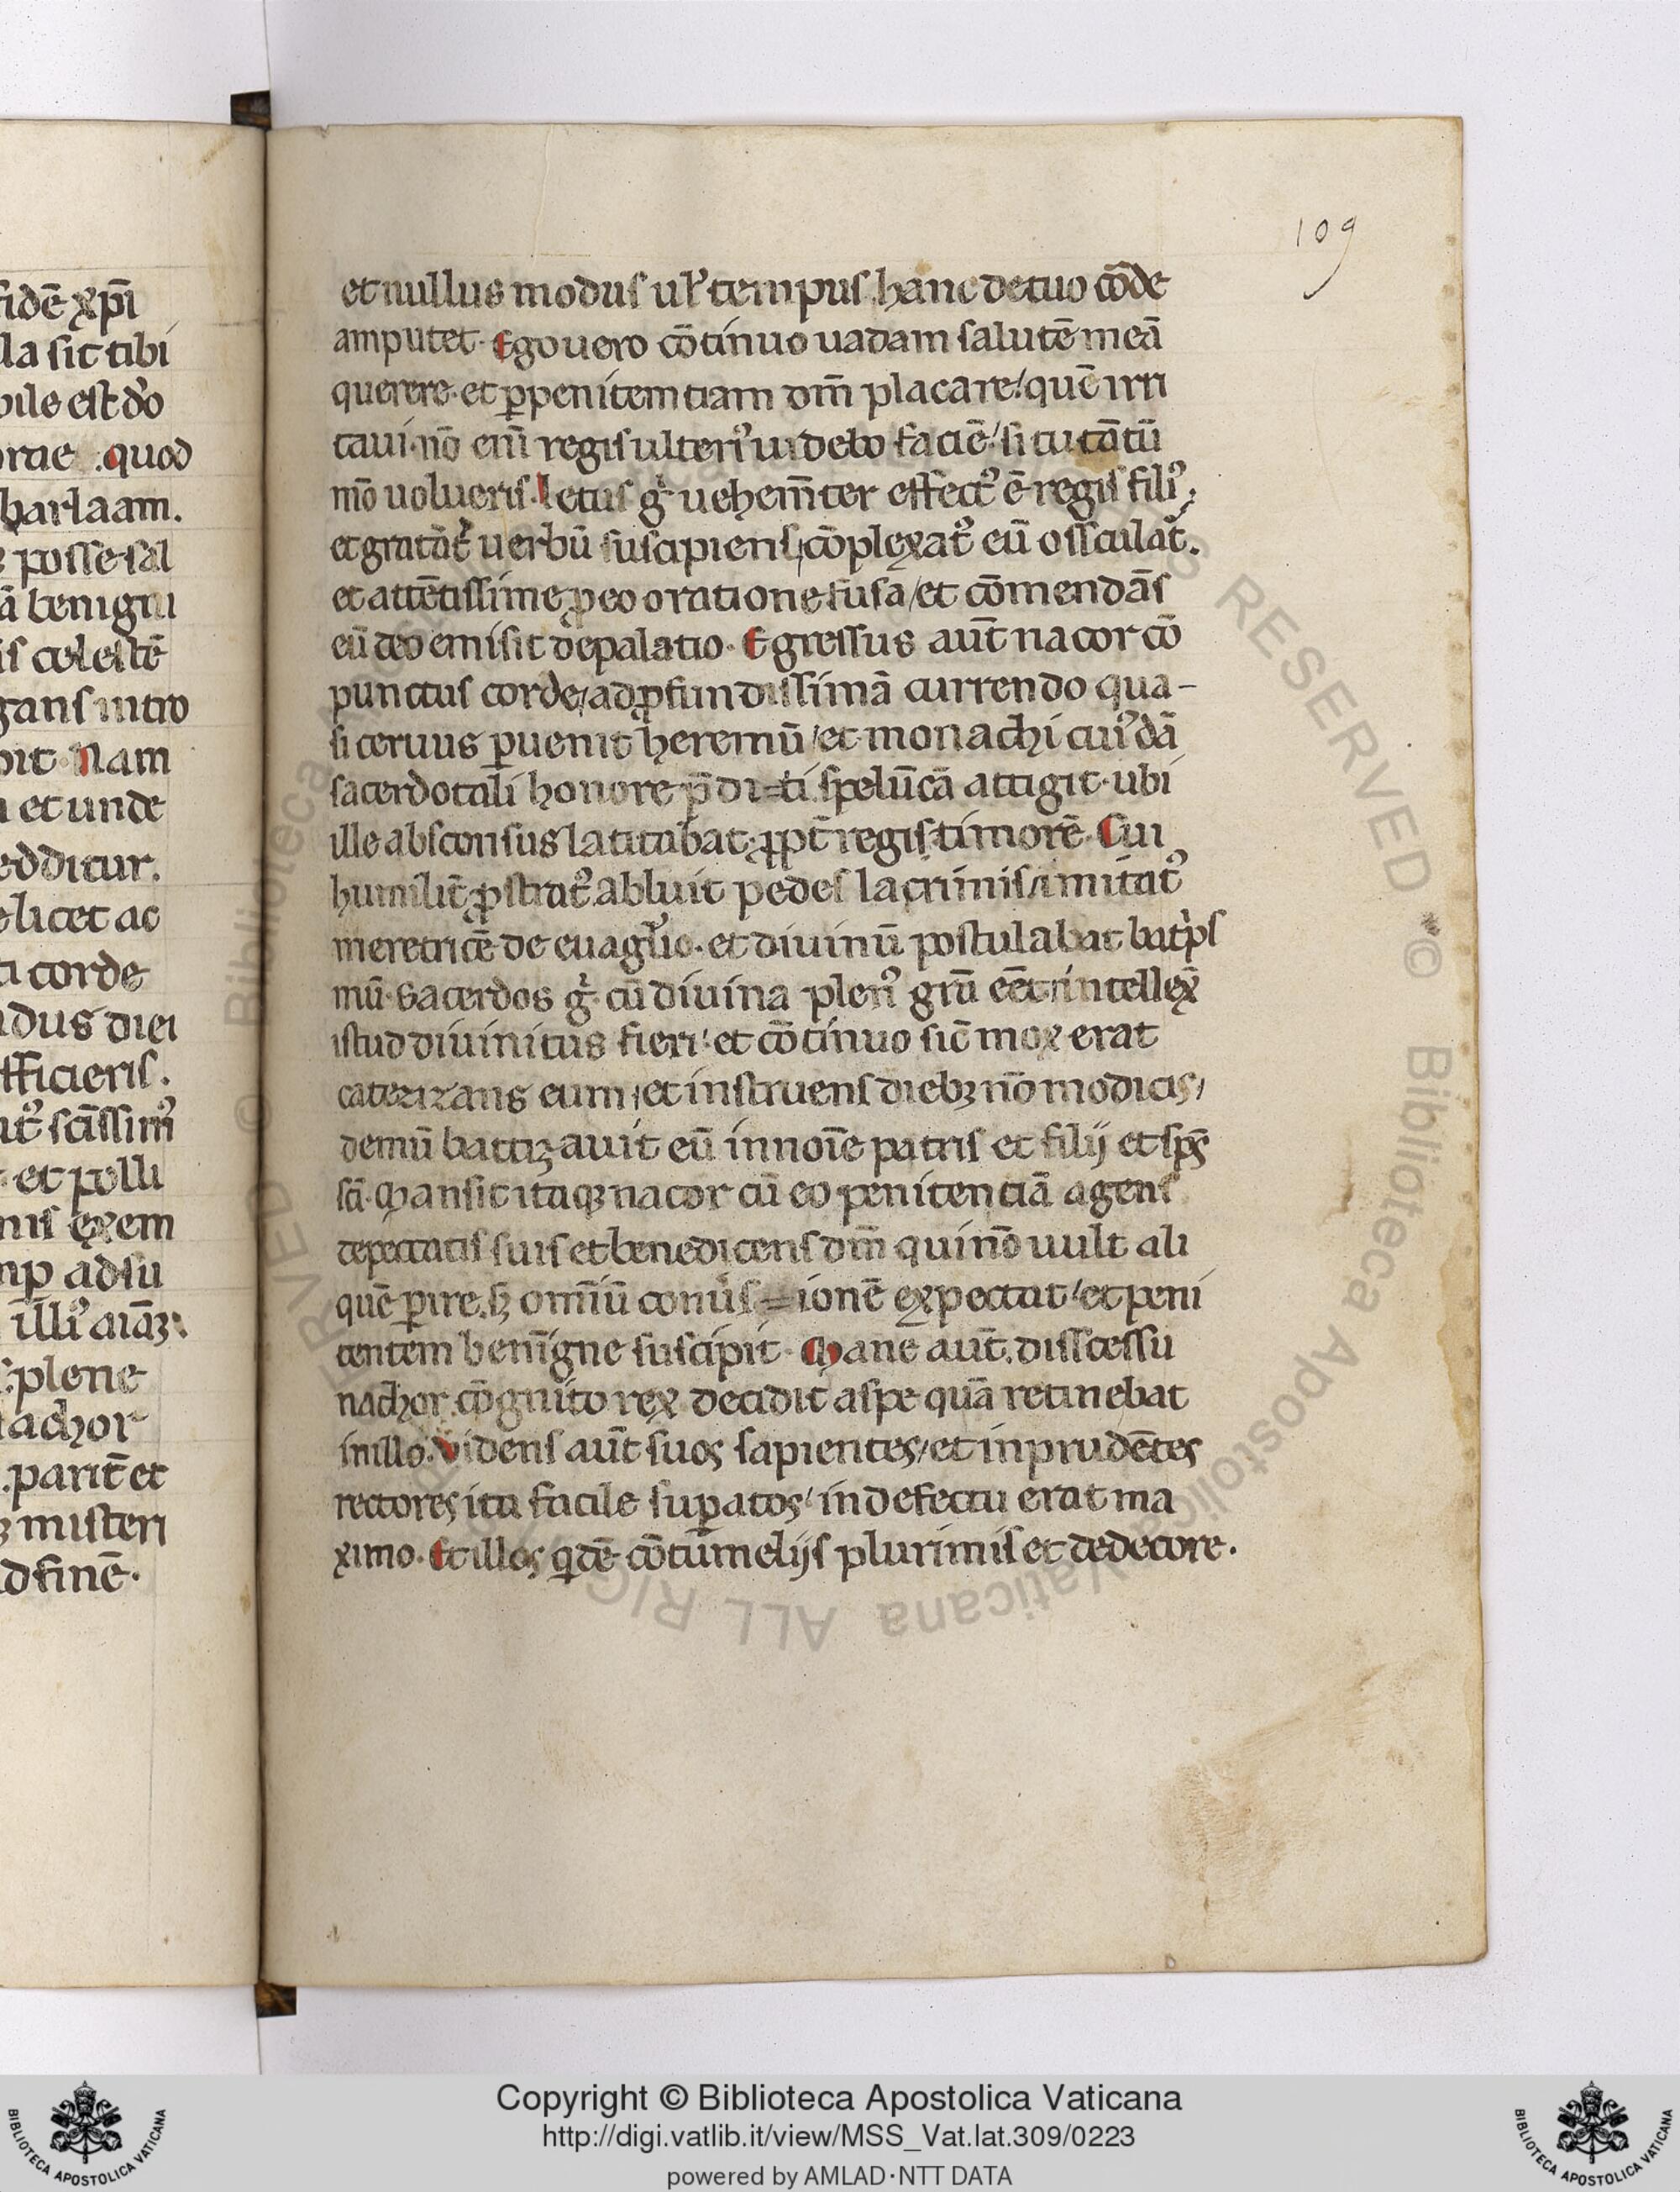 109
fidē xp̄i
la sit tibi
bile est dō
orae .quod
barlaam.
posse sal
ā benigni
is celestē
gans intro
bit. Nam
et unde
edditur.
elicet ac
ti corde
ndus diei
fficieris.
scīssimꝰ
et polli
nis exem
mp̱ adsu
illiꝰ aīaꝫ.
plene
achor
.parit̄ et
misteri
ad finē.
et nullus modus ul̓ tempus hanc de tuo cōde
amputet. Ego uero cōtinuo uadam salutē meā
querere. et ꝑ penitemtiam dm̄ placare / quē irri
taui. nō eni̅ regis ulteriꝰ uidebo faciē / si tu tātū
mō uolueris. letus gͥ uehem̄ter effectꝰ ē regis filiꝰ;
et gratāt̓ uerbū suscipiens, cōplexatꝰ eū osculat̓.
et attētissime ꝓ eo oratione fusa / et cōmendās
eū deo emisit de palatio. Egressus aut̄ nacor cō
punctus corde / ad ꝓfundissimā currendo qua-
si ceruus ꝑuenit heremū / et monachi cuiꝰdā
sacerdotali honore p̄di=ti spelūcā attigit. ubi
ille absconsus latitabat ꝓpt̄ regis timorē. Cui
humilit̄ ꝓstratꝰ abluit pedes lacrimis / imitatꝰ
meretricē de euagl̓io. et diuinū postulabat batp̓s
mū. Sacerdos gͥ. cū diuina plenꝰ grā eēt / intellex̄
istud diuinitus fieri / et cōtinuo sic̄ mox erat
catezizans eum / et instruens diebꝫ nō modicis /
demū battiꝫauit eū in noīe patris et filij et sp̄s
sc̄i. Mansit itaqꝫ nacor cū eo penitenciā agens
de peccatis suis et benedicens dm̄ qui nō uult ali
quē ꝑire. sꝫ omīū conu̓s=ionē expectat / et peni
tentem benīgne suscipit. Mane aut̄. disscessu
nachor cōgnito rex decidit a spe quā retinebat
in illo. Videns aut̄ suos sapientes / et inprudētes
rectores ita facile suꝑatos / in defectu erat ma
ximo. Et illos qͥdē cōtumelijs plurimis et dedecore.
Copyright © Biblioteca Apostolica Vaticana
http://digi.vatlib.it/view/MSS_Vat.lat.309/0223
powered by AMLAD·NTT DATA
BIBLIOTECA APOSTOLICA VATICANA
BIBLIOTECA APOSTOLICA VATICANA